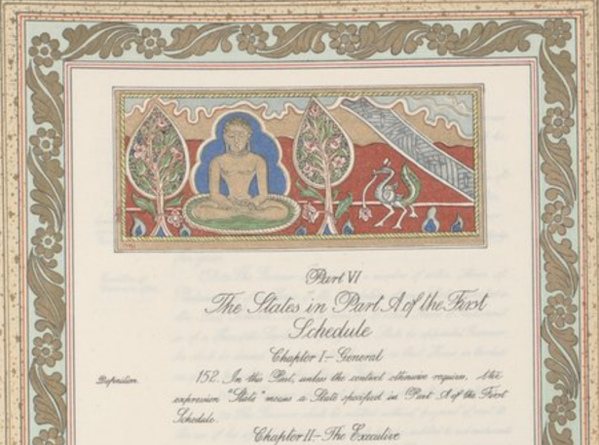 Part VI
The States in Part A of the First
Schedule
Chapter I—General
Definition.
152. In this Part, unless the context otherwise requires, the
expression "State" means a State specified in Part A of the First
Schedule.
Chapter II—The Executive